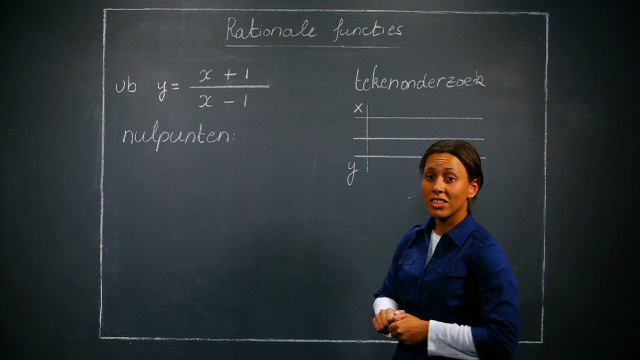 Rationale functies
vb y = x + 1 / x - 1
nulpunten:
tekenonderzoek
x
y